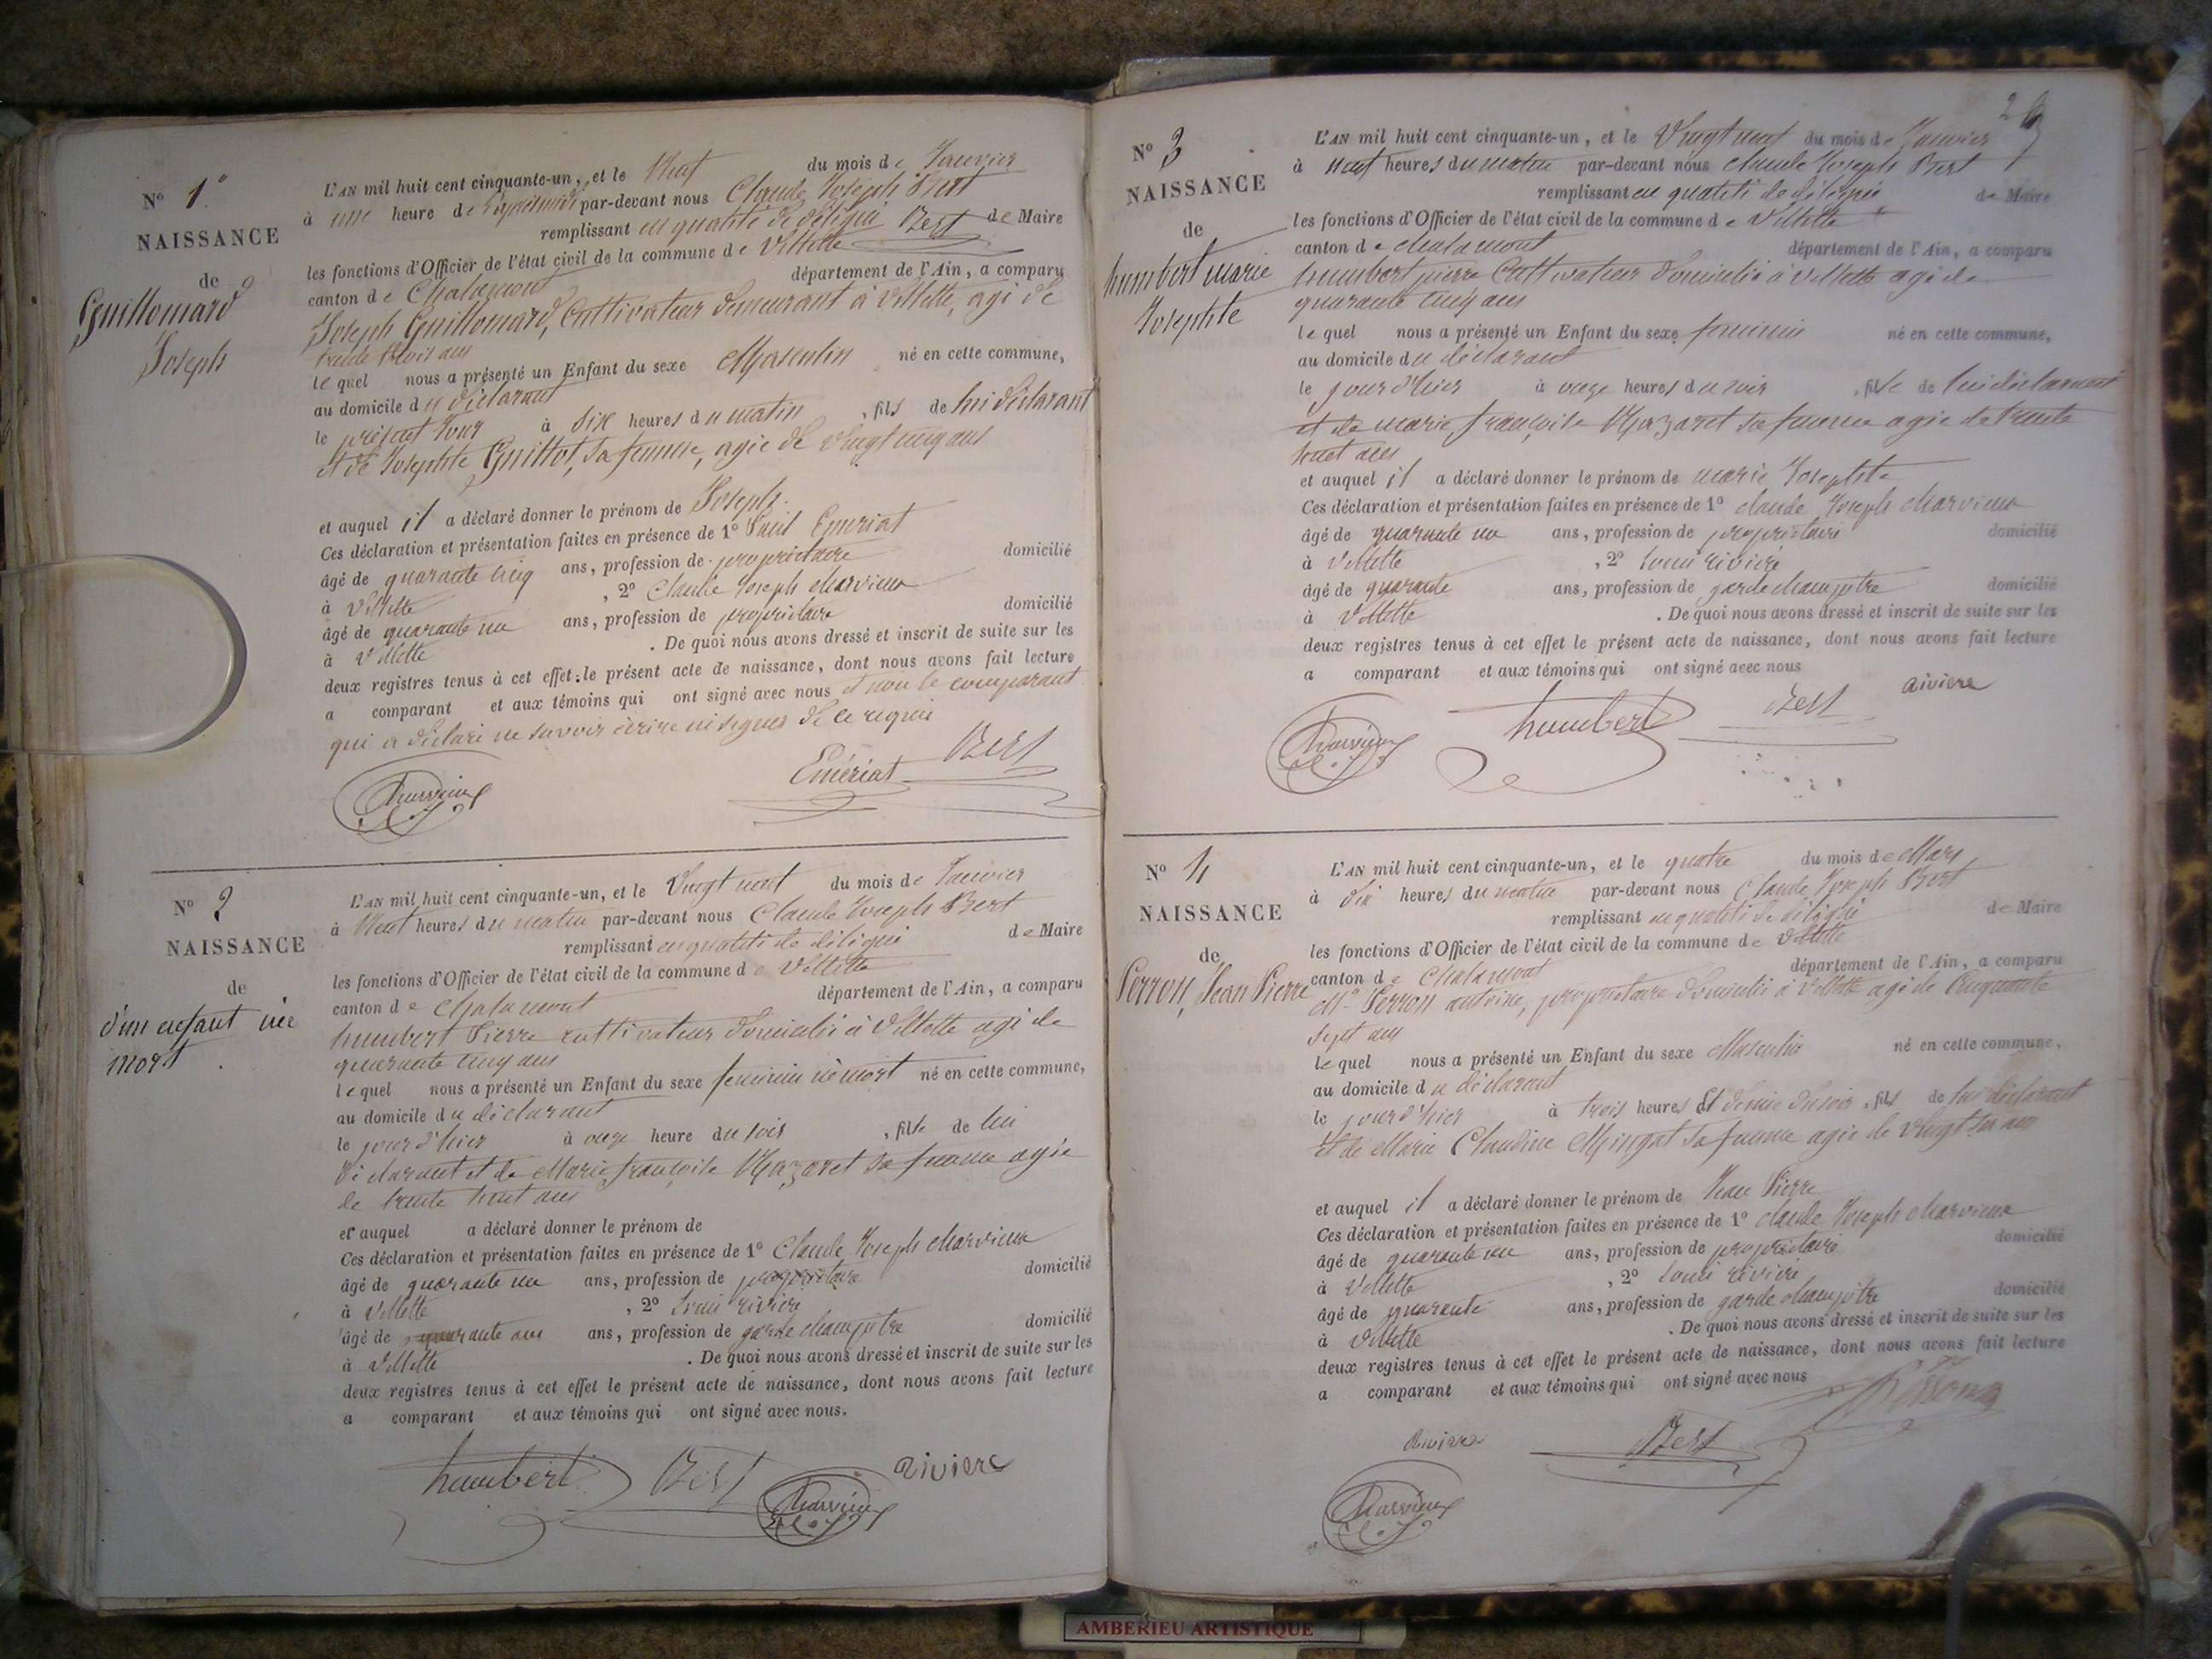 N° 1°
NAISSANCE
de
Guillomard
Joseph
L'AN mil huit cent cinquante-un, et le Neuf du mois de Janvier
à une heure de par-devant nous Claude Joseph Bert
remplissant en qualité de délégué Bert de Maire
les fonctions d'Officier de l'état civil de la commune de Villette
canton de Chalamont département de l'Ain, a comparu
Joseph Guillomard, Cultivateur demeurant à Villette, agé de
trente trois ans
lequel nous a présenté un Enfant du sexe Masculin né en cette commune,
au domicile du déclarant
le présent jour à six heures du matin, fils de lui déclarant
et de Josephte Guillot, sa femme, agée de vingt cinq ans
et auquel il a déclaré donner le prénom de Joseph.
Ces déclaration et présentation faites en présence de 1° Emeriat
âgé de quarante cinq ans, profession de propriétaire domicilié
à Villette, 2° Claude Joseph Charvieux
âgé de quarante un ans, profession de propriétaire domicilié
à Villette. De quoi nous avons dressé et inscrit de suite sur les
deux registres tenus à cet effet le présent acte de naissance, dont nous avons fait lecture
a comparant et aux témoins qui ont signé avec nous et non le comparant
qui a déclaré ne savoir écrire ni signer de ce requis
Charvieux Emériat Bert
N° 2
NAISSANCE
de
d'un enfant née
mort
L'AN mil huit cent cinquante-un, et le Vingt neuf du mois de Janvier
à Neuf heures du matin par-devant nous Claude Joseph Bert
remplissant en qualité de délégué de Maire
les fonctions d'Officier de l'état civil de la commune de Villette
canton de Chalamont département de l'Ain, a comparu
humbert Pierre cultivateur domicilié à Villette agé de
quarante cinq ans
lequel nous a présenté un Enfant du sexe feminin né mort né en cette commune,
au domicile du déclarant
le jour d'hier à onze heure du soir, fille de lui
déclarant et de Marie françoise Mazaret sa femme agée
de trente huit ans
et auquel a déclaré donner le prénom de
Ces déclaration et présentation faites en présence de 1° Claude Joseph Charvieux
âgé de quarante un ans, profession de propriétaire domicilié
à Villette, 2° Louis rivière
âgé de quarante ans ans, profession de garde champêtre domicilié
à Villette. De quoi nous avons dressé et inscrit de suite sur les
deux registres tenus à cet effet le présent acte de naissance, dont nous avons fait lecture
a comparant et aux témoins qui ont signé avec nous.
humbert Bert Charvieux riviere
2
N° 3
NAISSANCE
de
humbert marie
Josephte
L'AN mil huit cent cinquante-un, et le Vingt neuf du mois de Janvier
à neuf heures du matin par-devant nous Claude Joseph Bert
remplissant en qualité de délégué de Maire
les fonctions d'Officier de l'état civil de la commune de Villette
canton de Chalamont département de l'Ain, a comparu
humbert pierre Cultivateur domicilié à Villette agé de
quarante cinq ans
lequel nous a présenté un Enfant du sexe feminin né en cette commune,
au domicile du déclarant
le jour d'hier à onze heures du soir, fille de lui déclarant
et de marie françoise Mazaret sa femme agée de trente
huit ans
et auquel il a déclaré donner le prénom de marie Josephte
Ces déclaration et présentation faites en présence de 1° claude Joseph Charvieux
âgé de quarante un ans, profession de propriétaire domicilié
à Villette, 2° Louis rivière
âgé de quarante ans, profession de garde champêtre domicilié
à Villette. De quoi nous avons dressé et inscrit de suite sur les
deux registres tenus à cet effet le présent acte de naissance, dont nous avons fait lecture
a comparant et aux témoins qui ont signé avec nous
Charvieux humbert Bert riviere
N° 4
NAISSANCE
de
Perron, Jean Pierre
L'AN mil huit cent cinquante-un, et le quatre du mois de Mars
à dix heures du matin par-devant nous Claude Joseph Bert
remplissant en qualité de délégué de Maire
les fonctions d'Officier de l'état civil de la commune de Villette
canton de Chalamont département de l'Ain, a comparu
Mr Perron antoine, propriétaire domicilié à Villette agé de Cinquante
sept ans
lequel nous a présenté un Enfant du sexe Masculin né en cette commune,
au domicile du déclarant
le jour d'hier à trois heures et demie du soir, fils de lui déclarant
et de Marie Claudine Mingat sa femme agée de vingt ans
et auquel il a déclaré donner le prénom de Jean Pierre
Ces déclaration et présentation faites en présence de 1° claude Joseph Charvieux
âgé de quarante un ans, profession de propriétaire domicilié
à Villette, 2° Louis rivière
âgé de quarante ans, profession de garde champêtre domicilié
à Villette. De quoi nous avons dressé et inscrit de suite sur les
deux registres tenus à cet effet le présent acte de naissance, dont nous avons fait lecture
a comparant et aux témoins qui ont signé avec nous
Perron
riviere Bert
Charvieux
AMBERIEU ARTISTIQUE